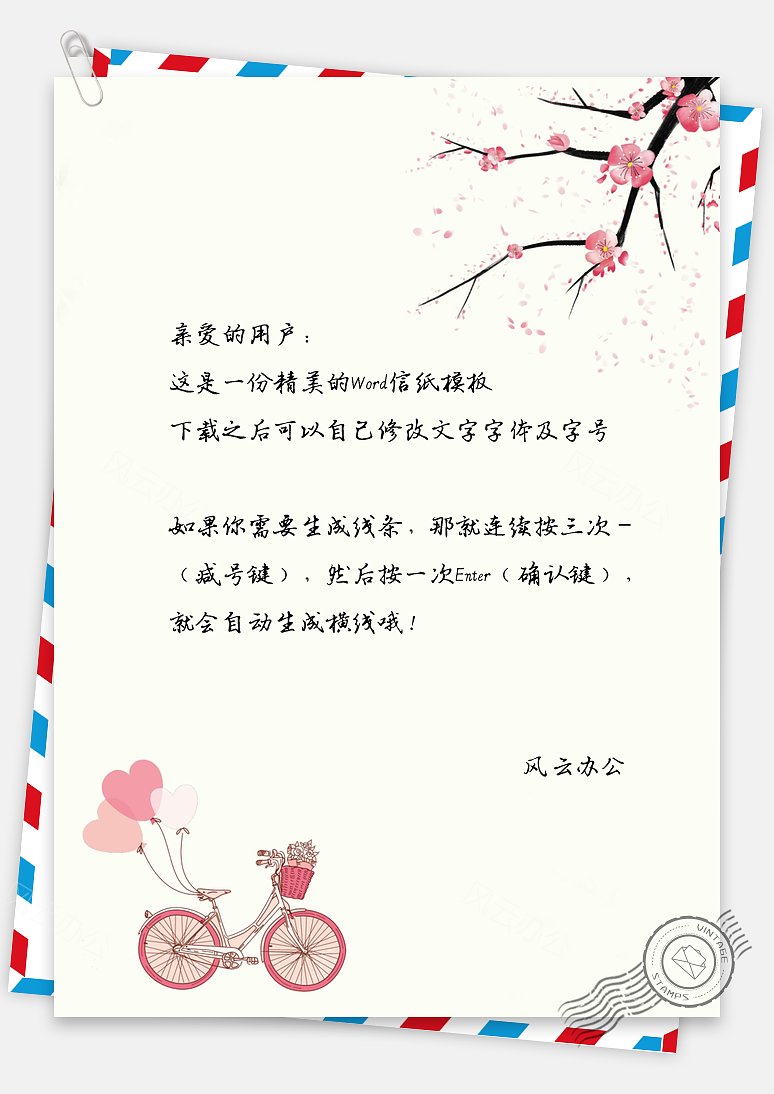 亲爱的用户：
这是一份精美的Word信纸模板
下载之后可以自己修改文字字体及字号
如果你需要生成线条，那就连续按三次－
（减号键），然后按一次Enter（确认键），
就会自动生成横线哦！
风云办公
VINTAGE
STAMPS
风云办公
风云办公
风云办公
风云办公